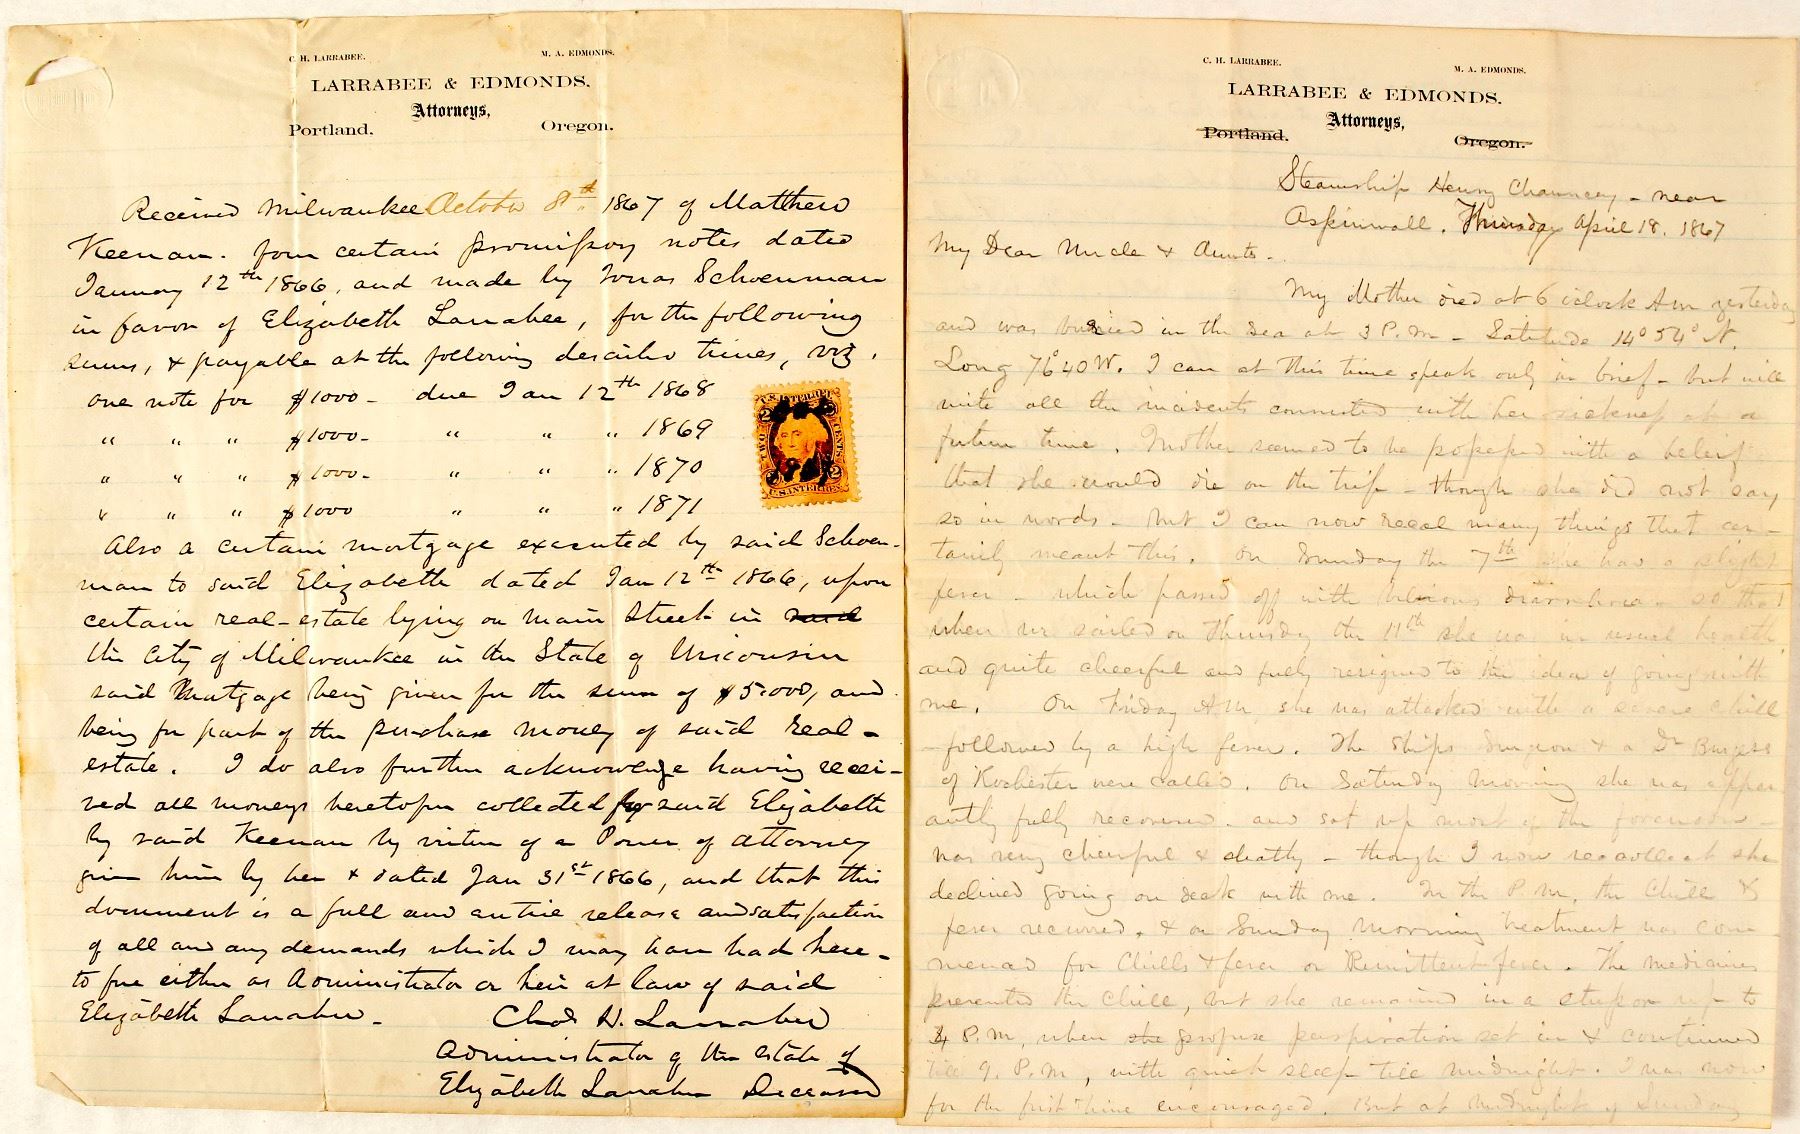 C. H. LARRABEE. M. A. EDMONDS.
LARRABEE & EDMONDS.
Attorneys,
Portland, Oregon.
Received Milwaukee October 8th 1867 of Matthew
Keenan. four certain promissory notes dated
January 12th 1866, and made by Jonas Schoenman
in favor of Elizabeth Larrabee, for the following
sums, & payable at the following described times, viz.
one note for $1000 - due Jan 12th 1868
" " " $1000 - " " " 1869
" " " $1000 - " " " 1870
" " " $1000 " " " 1871
Also a certain mortgage executed by said Schoen-
man to said Elizabeth dated Jan 12th 1866, upon
certain real-estate lying on Main Street in said
the City of Milwaukee in the State of Wisconsin
said Mortgage being given for the sum of $5.000, and
being for part of the purchase money of said real-
estate. I do also further acknowledge having recei-
ved all moneys heretofore collected for said Elizabeth
by said Keenan by virtue of a Power of Attorney
given him by her & dated Jan 31st 1866, and that this
document is a full and entire release and satisfaction
of all and any demands which I may have had here-
tofore either as Administrator or heir at law of said
Elizabeth Larrabee - Chas H. Larrabee
Administrator of the estate of
Elizabeth Larrabee Deceased
U.S. INTER. REV.
TWO CENTS
2 2
U.S. INTER. REV.
C. H. LARRABEE. M. A. EDMONDS.
LARRABEE & EDMONDS.
Attorneys,
Portland. Oregon.
Steamship Henry Chauncey - near
Aspinwall. Thursday April 18. 1867
My Dear Uncle & Aunts -
My Mother died at 6 o'clock A m yesterday
and was buried in the sea at 3 P.M - Latitude 14° 54° N.
Long 76° 40 W. I can at this time speak only in brief - but will
write all the incidents connected with her sickness at a
future time. Mother seemed to be possessed with a belief
that she would die on the trip - though she did not say
so in words - but I can now recal many things that cer-
tainly meant this. On Sunday the 7th she had a slight
fever - which passed off with bilious diarrhoea - so that
when we sailed on Thursday the 11th she was in usual health
and quite cheerful and fully resigned to the idea of going with
me. On Friday A M she was attacked with a severe chill
- followed by a high fever. The ships Surgeon & a Dr Burgess
of Rochester were called. On Saturday morning she was appar
antly fully recovered. and sat up most of the forenoon -
was very cheerful & chatty - though I now recollect she
declined going on deck with me. In the P.M, the chill &
fever recurred. & on Sunday morning treatment was com
menced for Chills & fever or Remittent fever. The medicines
prevented the chill, but she remained in a stupor up to
4 P.M, when she profuse perspiration set in & continued
till 9. P.M, with quiet sleep till midnight. I was now
for the first time encouraged. But at midnight of Sunday